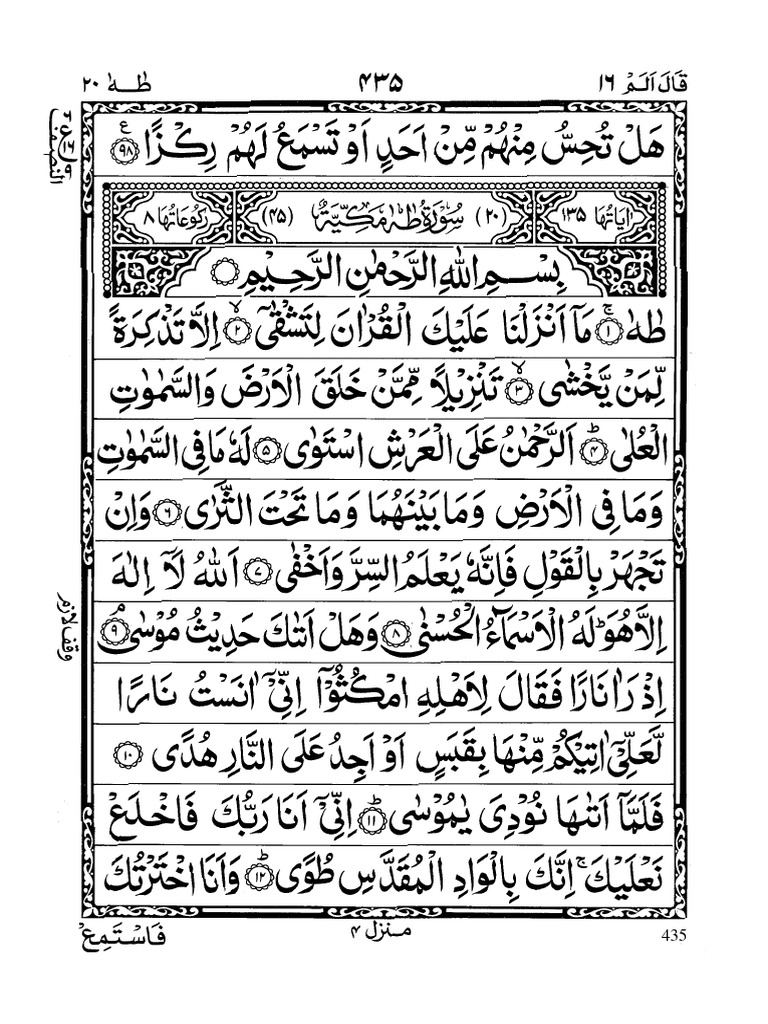 قَالَ اَلَمْ ١٦
۴۳۵
طٰهٰ ٢٠
هَلْ تُحِسُّ مِنْهُمْ مِّنْ اَحَدٍ اَوْ تَسْمَعُ لَهُمْ رِكْزًا ﴿٩٨﴾ ع
اٰيَاتُهَا ١٣٥ (٢٠) سُوْرَةُ طٰهٰ مَكِّيَّةٌ (۴۵) رُكُوْعَاتُهَا ٨
بِسْمِ اللّٰهِ الرَّحْمٰنِ الرَّحِيْمِ
طٰهٰ ۚ﴿١﴾ مَاۤ اَنْزَلْنَا عَلَيْكَ الْقُرْاٰنَ لِتَشْقٰٓى ۙ﴿٢﴾ اِلَّا تَذْكِرَةً
لِّمَنْ يَّخْشٰى ۙ﴿٣﴾ تَنْزِيْلًا مِّمَّنْ خَلَقَ الْاَرْضَ وَالسَّمٰوٰتِ
الْعُلٰى ؕ﴿۴﴾ اَلرَّحْمٰنُ عَلَى الْعَرْشِ اسْتَوٰى ﴿۵﴾ لَهٗ مَا فِى السَّمٰوٰتِ
وَمَا فِى الْاَرْضِ وَمَا بَيْنَهُمَا وَمَا تَحْتَ الثَّرٰى ﴿۶﴾ وَاِنْ
تَجْهَرْ بِالْقَوْلِ فَاِنَّهٗ يَعْلَمُ السِّرَّ وَاَخْفٰى ﴿٧﴾ اَللّٰهُ لَاۤ اِلٰهَ
اِلَّا هُوَ ؕ لَهُ الْاَسْمَآءُ الْحُسْنٰى ﴿٨﴾ وَهَلْ اَتٰىكَ حَدِيْثُ مُوْسٰى ۘ﴿٩﴾
وقف لازم
اِذْ رَاٰ نَارًا فَقَالَ لِاَهْلِهِ امْكُثُوْۤا اِنِّىْۤ اٰنَسْتُ نَارًا
لَّعَلِّىْۤ اٰتِيْكُمْ مِّنْهَا بِقَبَسٍ اَوْ اَجِدُ عَلَى النَّارِ هُدًى ﴿١٠﴾
فَلَمَّاۤ اَتٰىهَا نُوْدِىَ يٰمُوْسٰى ؕ﴿١١﴾ اِنِّىْۤ اَنَا رَبُّكَ فَاخْلَعْ
نَعْلَيْكَ ۚ اِنَّكَ بِالْوَادِ الْمُقَدَّسِ طُوًى ؕ﴿١٢﴾ وَاَنَا اخْتَرْتُكَ
435
منزل ۴
فَاسْتَمِعْ